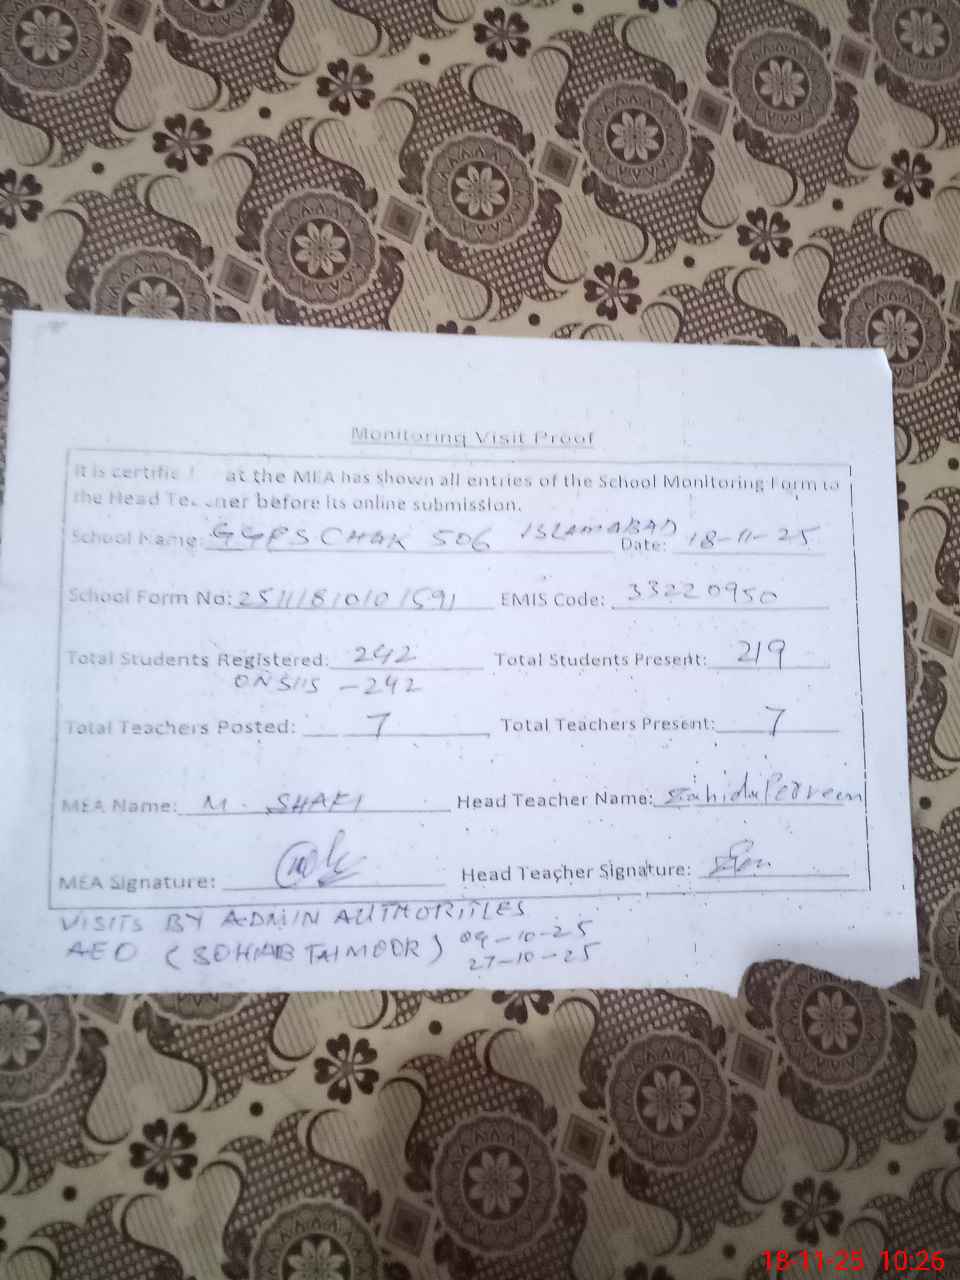 Monitoring Visit Proof
It is certifie at the MEA has shown all entries of the School Monitoring Form to
the Head Te ner before its online submission.
School Name: GGPS CHAK 506 ISLAMABAD Date: 18-11-25
School Form No: EMIS Code: 33220950
Total Students Registered: 242 Total Students Present: 219
ON SIS - 242
Total Teachers Posted: 7 Total Teachers Present: 7
MEA Name: M. SHAFI Head Teacher Name: Zahida Perveen
MEA Signature: Head Teacher Signature:
VISITS BY ADMIN AUTHORITIES
AEO (SOHAIB TAIMOOR) 09-10-25
27-10-25
18-11-25 10:26